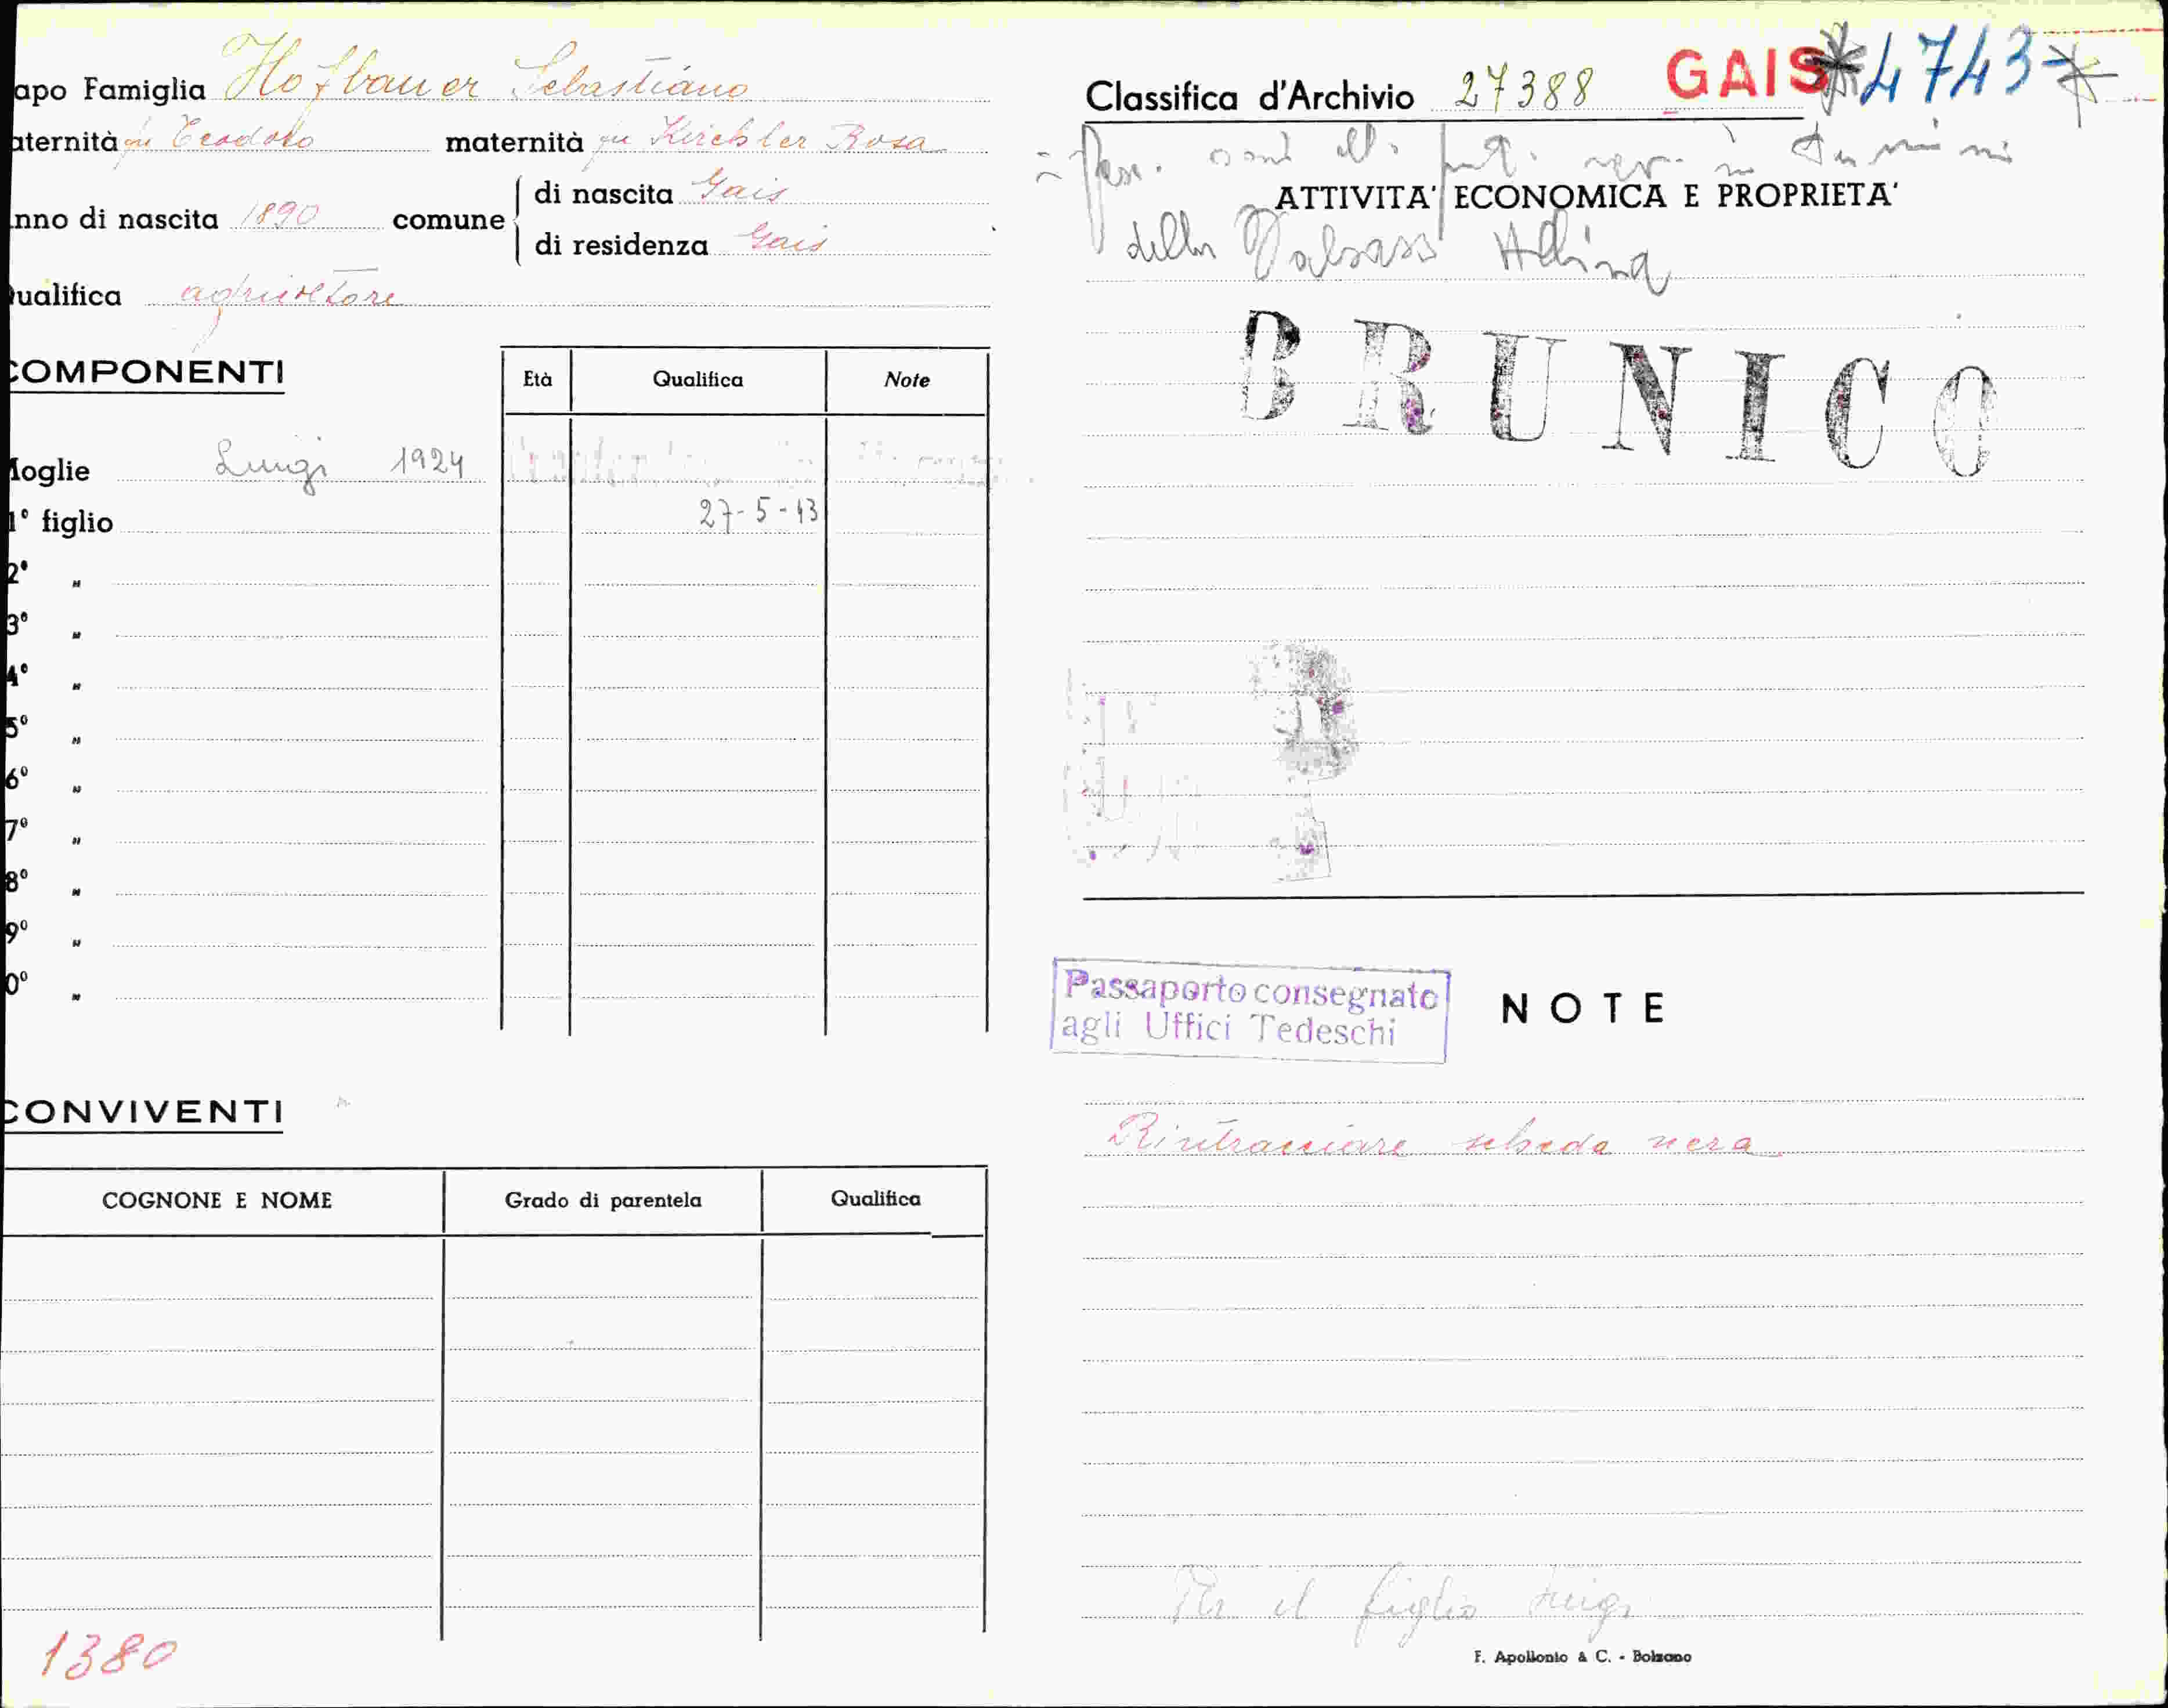 apo Famiglia Hofbauer Sebastiano
aternità fu Teodoro maternità fu Kirchler Rosa
nno di nascita 1890 comune di nascita Gais
di residenza Gais
ualifica agricoltore
COMPONENTI
Età Qualifica Note
oglie Luigi 1924
1° figlio 27-5-43
2° "
3° "
4° "
5° "
6° "
7° "
8° "
9° "
0° "
CONVIVENTI
COGNONE E NOME Grado di parentela Qualifica
1380
Classifica d'Archivio 27388 GAIS *4743*
ATTIVITA' ECONOMICA E PROPRIETA'
della
BRUNICO
Passaporto consegnato
agli Uffici Tedeschi
NOTE
Rintracciare scheda nera
Per il figlio Luigi
F. Apollonio & C. - Bolzano